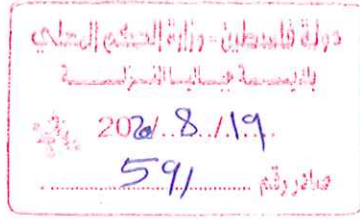 دولة فلسطين - وزارة الحكم المحلي
بلديـــة عبسان الكبيرة
202 / 8 / 19
صادر رقم 591